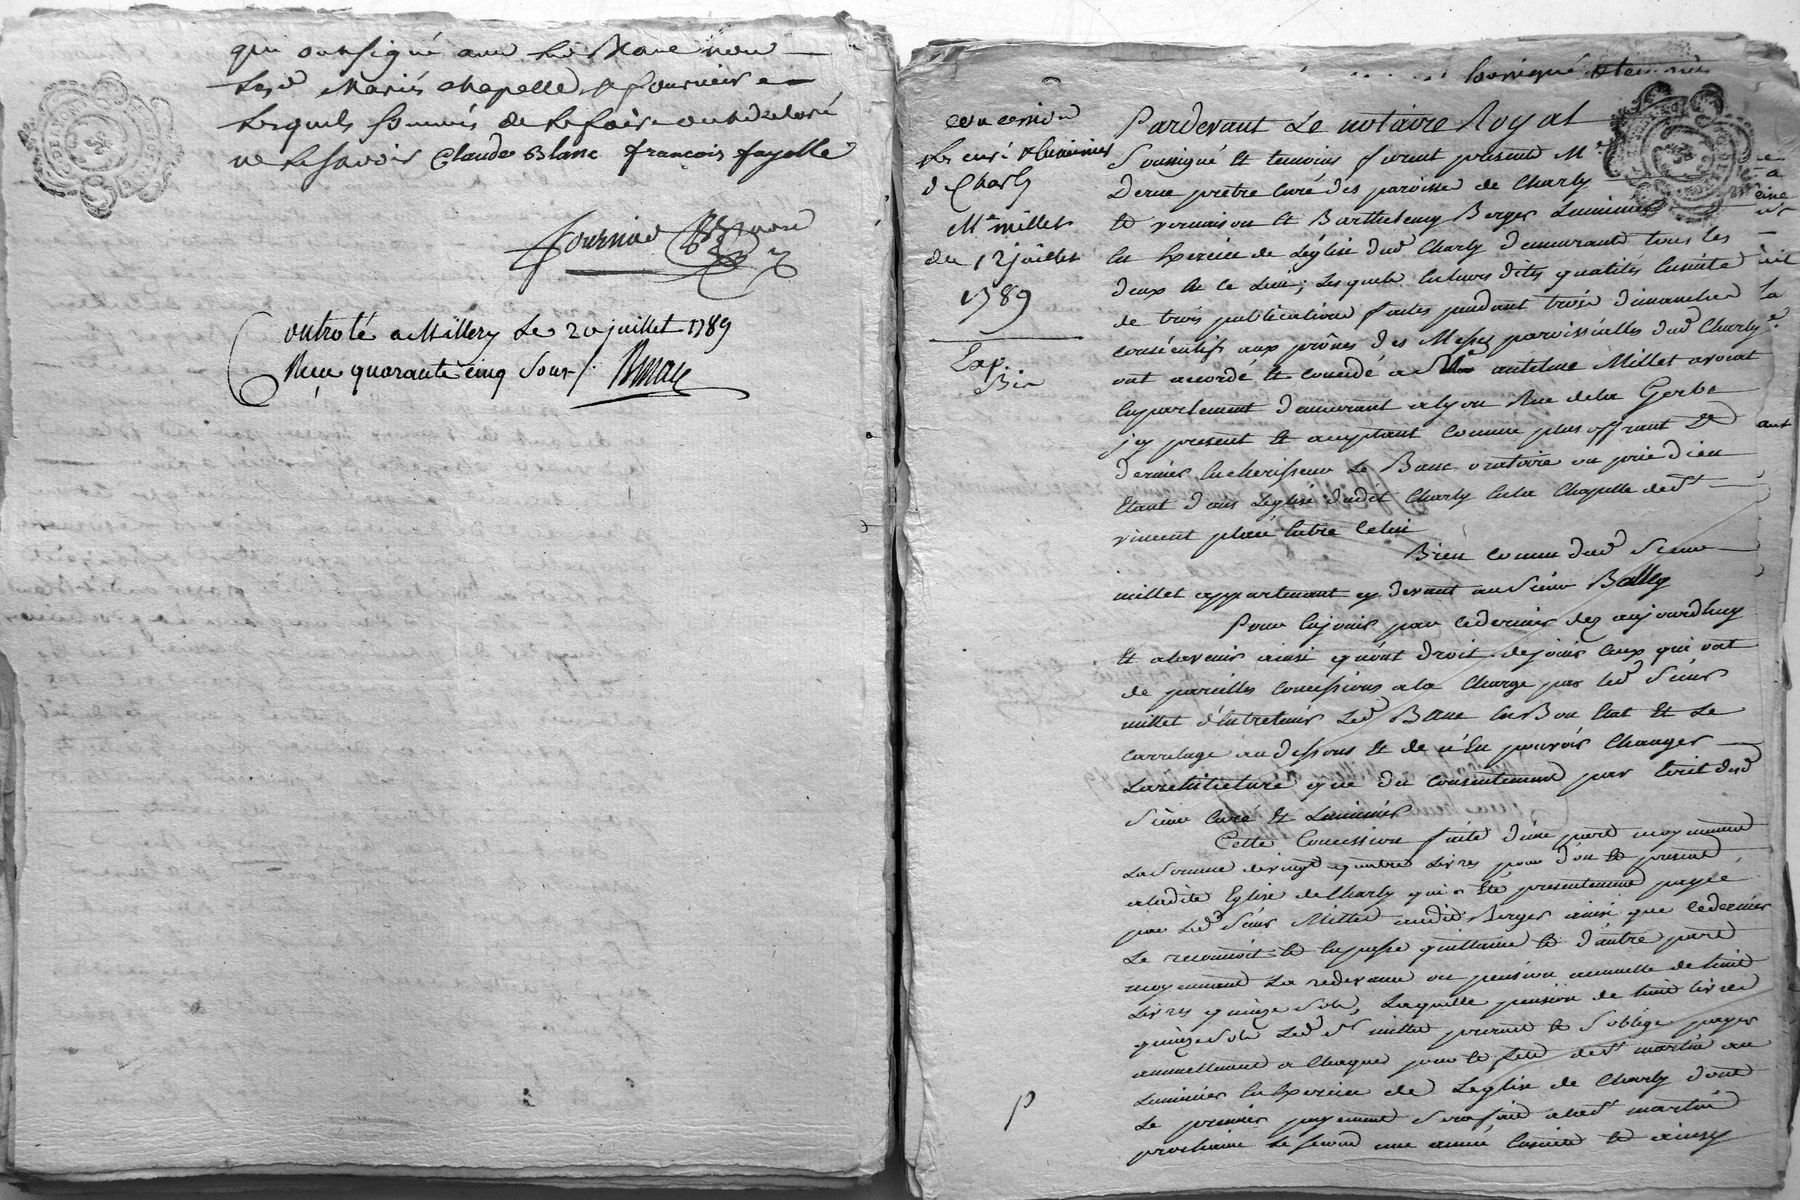 qui ont signé avec led Blanc non
lesd mariés chapelle & fournier
lesquels sommés de le faire ont declaré
ne le savoir Claude Blanc françois fayolle
fournier
Controlé a Millery Le 20 juillet 1789
Reçu quarante cinq sous
soussigné & temoins
concession
les curé & luminier
de Charly
Me millet
du 12 juillet
1789
Exp.
Pardevant Le notaire Royal
Soussigné Et temoins furent present Me
prêtre Curé des paroisses de Charly
Et vernaison Et Barthelemy Berger Luminier
En Exercice de Léglise dud Charly demeurants tous les
deux En ce Lieu; Lesquels Enleurs dites qualités Ensuite
de trois publications faites pendant trois dimanches
consécutifs aux prônes des Messes paroissialles dud Charly
ont accordé Et concédé a Me antelme Millet avocat
Enparlement demeurant alyon Rue dela Gerbe
jcy present Et acceptant Comme plus offrant Et
dernier Encherisseur Le Banc oratoire ou prie dieu
Etant dans Leglise dudit Charly Enla Chapelle de St
vincent placé Entre Celui
Bien Connu dud Sieur
millet appartenant cy devant au Sieur Bally
Pour Enjouir par cedernier dez aujourdhuy
Et alavenir ainsi qu'ont droit dejouir Ceux qui ont
de pareilles Concessions ala Charge par led Sieur
millet d'Entretenir Led Banc En Bon Etat Et Le
Carrelage au dessous Et de n'En pouvoir Changer
Larchitecture que du Consentement par Ecrit desd
Sieur Curé Et Luminier
Cette Concession faite d'une part moyennant
La Somme devingt quatre Livres pour don Et present
aladite Eglise de Charly qui a Eté presentement payée
par Led Sieur Millet audit Berger ainsi que cedernier
Le reconnoit Et Enpasse quittance Et d'autre part
moyennant La redevance ou pension annuelle de huit
Livres quinze Sols, Laquelle pension de huit livres
quinze Sols Led Sr millet promet Et S'oblige payer
annuellement a Chaque jour Et fête de St martin au
Luminier En Exercice de Leglise de Charly dont
Le premier payement Sera fait ala St martin
prochaine Le second une année Ensuite Et ainsy